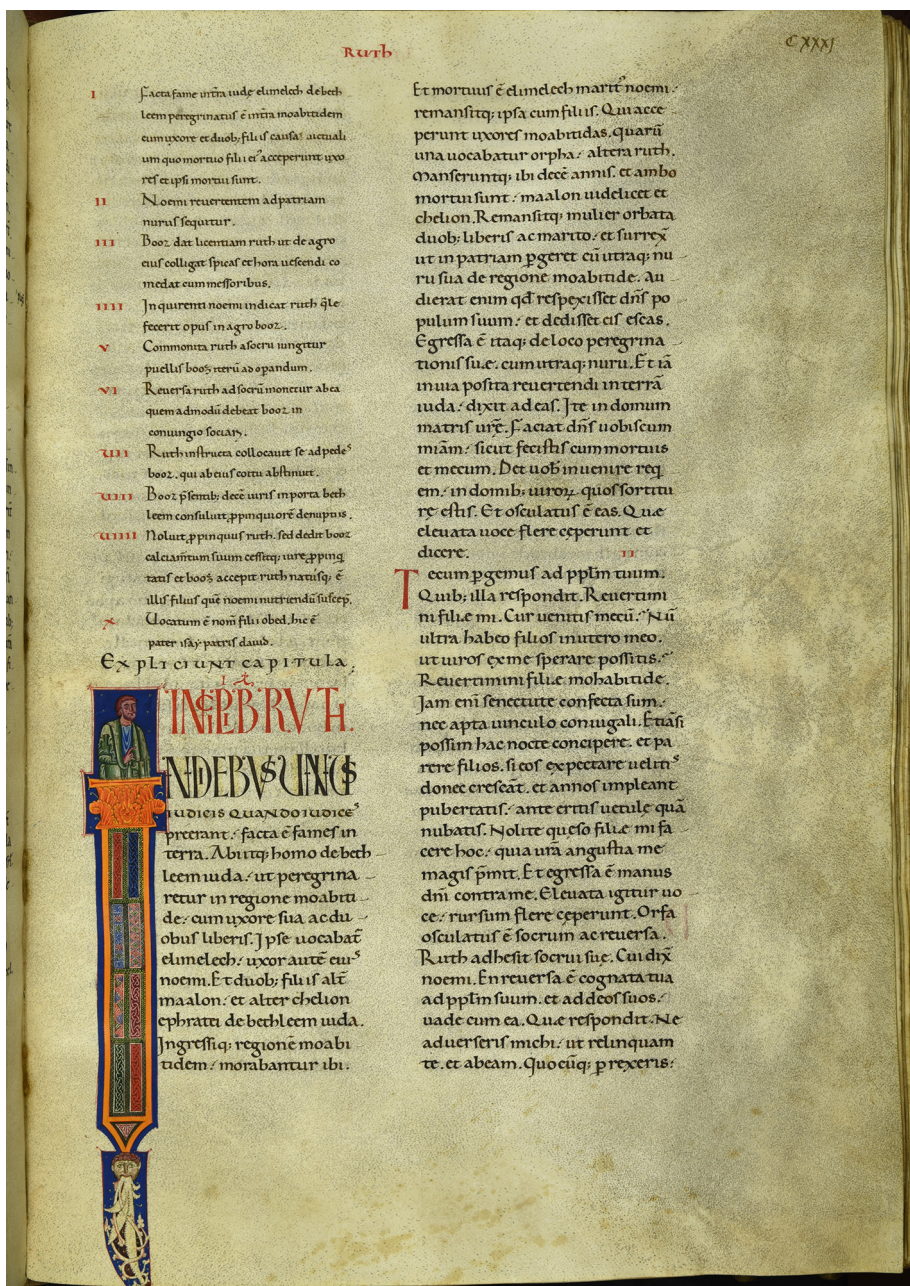 Ruth
CXXXI
I Facta fame in tr̄a iudę elimelech de beth
leem peregrinatus ē in tr̄a moabitidem
cum uxore et duob; filiis causa uictuali
um quo mortuo filii ei' acceperunt uxo
res et ipsi mortui sunt.
II Noemi revertentem ad patriam
nurus sequitur.
III Booz dat licentiam ruth ut de agro
eius colligat spicas et hora uescendi co
medat cum messoribus.
IIII Inquirenti noemi indicat ruth q̄le
fecerit opus in agro booz.
V Commonita ruth a socru iungitur
puellis booz iterū ad opandum.
VI Reuersa ruth ad socrū monetur ab ea
quemadmodū debeat booz in
coniungio sociari.
VII Ruth instructa collocauit se ad pedes
booz. qui ab eius coitu abstinuit.
VIII Booz p̄sentib; decē uiris in porta beth
leem consuluit ppinquiorē de nuptiis.
VIIII Noluit ppinquus ruth. sed dedit booz
calciam̄tum suum cessitq; iure ppinq
tatis et booz accepit ruth natusq; ē
illis filius quē noemi nutriendū suscep.
X Uocatum ē nom̄ filii obed. hic ē
pater isay patris dauid.
Expliciunt capitula.
INCIPIT LIB RUTH.
IN DIEBUS UNIUS
iudicis quando iudices
preerant. facta ē fames in
terra. Abiitq; homo de beth
leem iuda. ut peregrina
retur in regione moabiti
de. cum uxore sua ac du
obus liberis. Ipse uocabat̄
elimelech. uxor autē eius
noemi. Et duob; filiis alt̄
maalon. et alter chelion
ephratei de bethleem iuda.
Ingressiq; regionē moabi
tidem. morabantur ibi.
Et mortuus ē elimelech marit' noemi.
remansitq; ipsa cum filiis. Qui acce
perunt uxores moabitidas. quarū
una uocabatur orpha. altera ruth.
Manseruntq; ibi decē annis. et ambo
mortui sunt. maalon uidelicet et
chelion. Remansitq; mulier orbata
duob; liberis ac marito. et surrex̄
ut in patriam pgeret cū utraq; nu
ru sua de regione moabitide. Au
dierat enim qd̄ respexisset dn̄s po
pulum suum. et dedisset eis escas.
Egressa ē itaq; de loco peregrina
tionis suæ. cum utraq; nuru. Et iā
in uia posita reuertendi in terrā
iuda. dixit ad eas. Ite in domum
matris ur̄e. Faciat dn̄s uobiscum
miām. sicut fecistis cum mortuis
et mecum. Det uob̄ inuenire req
em. in domib; uiroꝝ quos sortitu
re estis. Et osculatus ē eas. Quæ
eleuata uoce flere ceperunt et
dicere.
II
Tecum pgemus ad pplm̄ tuum.
Quib; illa respondit. Reuertimi
ni filiæ mi. Cur uenitis mecū. Nū
ultra habeo filios in utero meo.
ut uiros ex me sperare possitis.
Reuertimini filiæ mohabitide.
Iam eni senectute confecta sum.
nec apta uinculo coniugali. Etiāsi
possim hac nocte concipere. et pa
rere filios. si eos expectare uelitis
donec crescāt. et annos impleant
pubertatis. ante eritis uetule quā
nubatis. Nolite queso filiæ mi fa
cere hoc. quia ur̄a angustia me
magis p̄mit. Et egressa ē manus
dn̄i contra me. Eleuata igitur uo
ce. rursum flere ceperunt. Orfa
osculatus ē socrum ac reuersa.
Ruth adhesit socrui suę. Cui dix̄
noemi. En reuersa ē cognata tua
ad pplm̄ suum. et ad deos suos.
uade cum ea. Quæ respondit. Ne
aduerseris michi. ut relinquam
te. et abeam. Quocūq; prexeris.